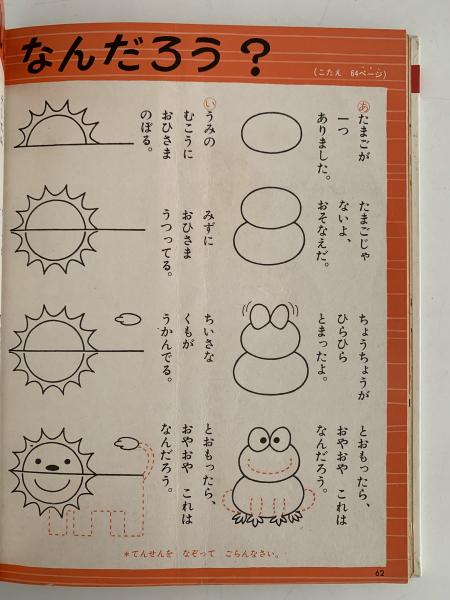 なんだろう？
（こたえ 64ページ）
あ たまごが
一つ
ありました。
たまごじゃ
ないよ、
おそなえだ。
ちょうちょうが
ひらひら
とまったよ。
とおもったら、
おやおや これは
なんだろう。
い うみの
むこうに
おひさま
のぼる。
みずに
おひさま
うつってる。
ちいさな
くもが
うかんでる。
とおもったら、
おやおや これは
なんだろう。
＊てんせんを なぞって ごらんなさい。
62